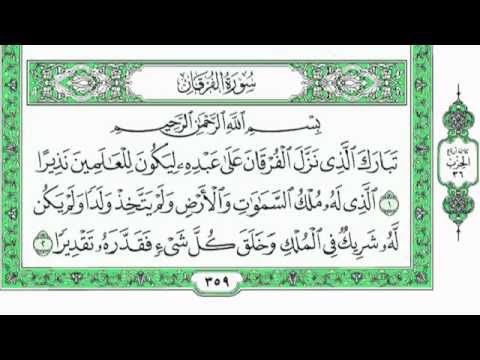 سُورَةُ الفُرْقَانِ
بِسْمِ اللَّهِ الرَّحْمَٰنِ الرَّحِيمِ
تَبَارَكَ الَّذِي نَزَّلَ الْفُرْقَانَ عَلَىٰ عَبْدِهِ لِيَكُونَ لِلْعَالَمِينَ نَذِيرًا
١ الَّذِي لَهُ مُلْكُ السَّمَاوَاتِ وَالْأَرْضِ وَلَمْ يَتَّخِذْ وَلَدًا وَلَمْ يَكُن
لَّهُ شَرِيكٌ فِي الْمُلْكِ وَخَلَقَ كُلَّ شَيْءٍ فَقَدَّرَهُ تَقْدِيرًا ٢
الحِزْب
٣٦
٣٥٩